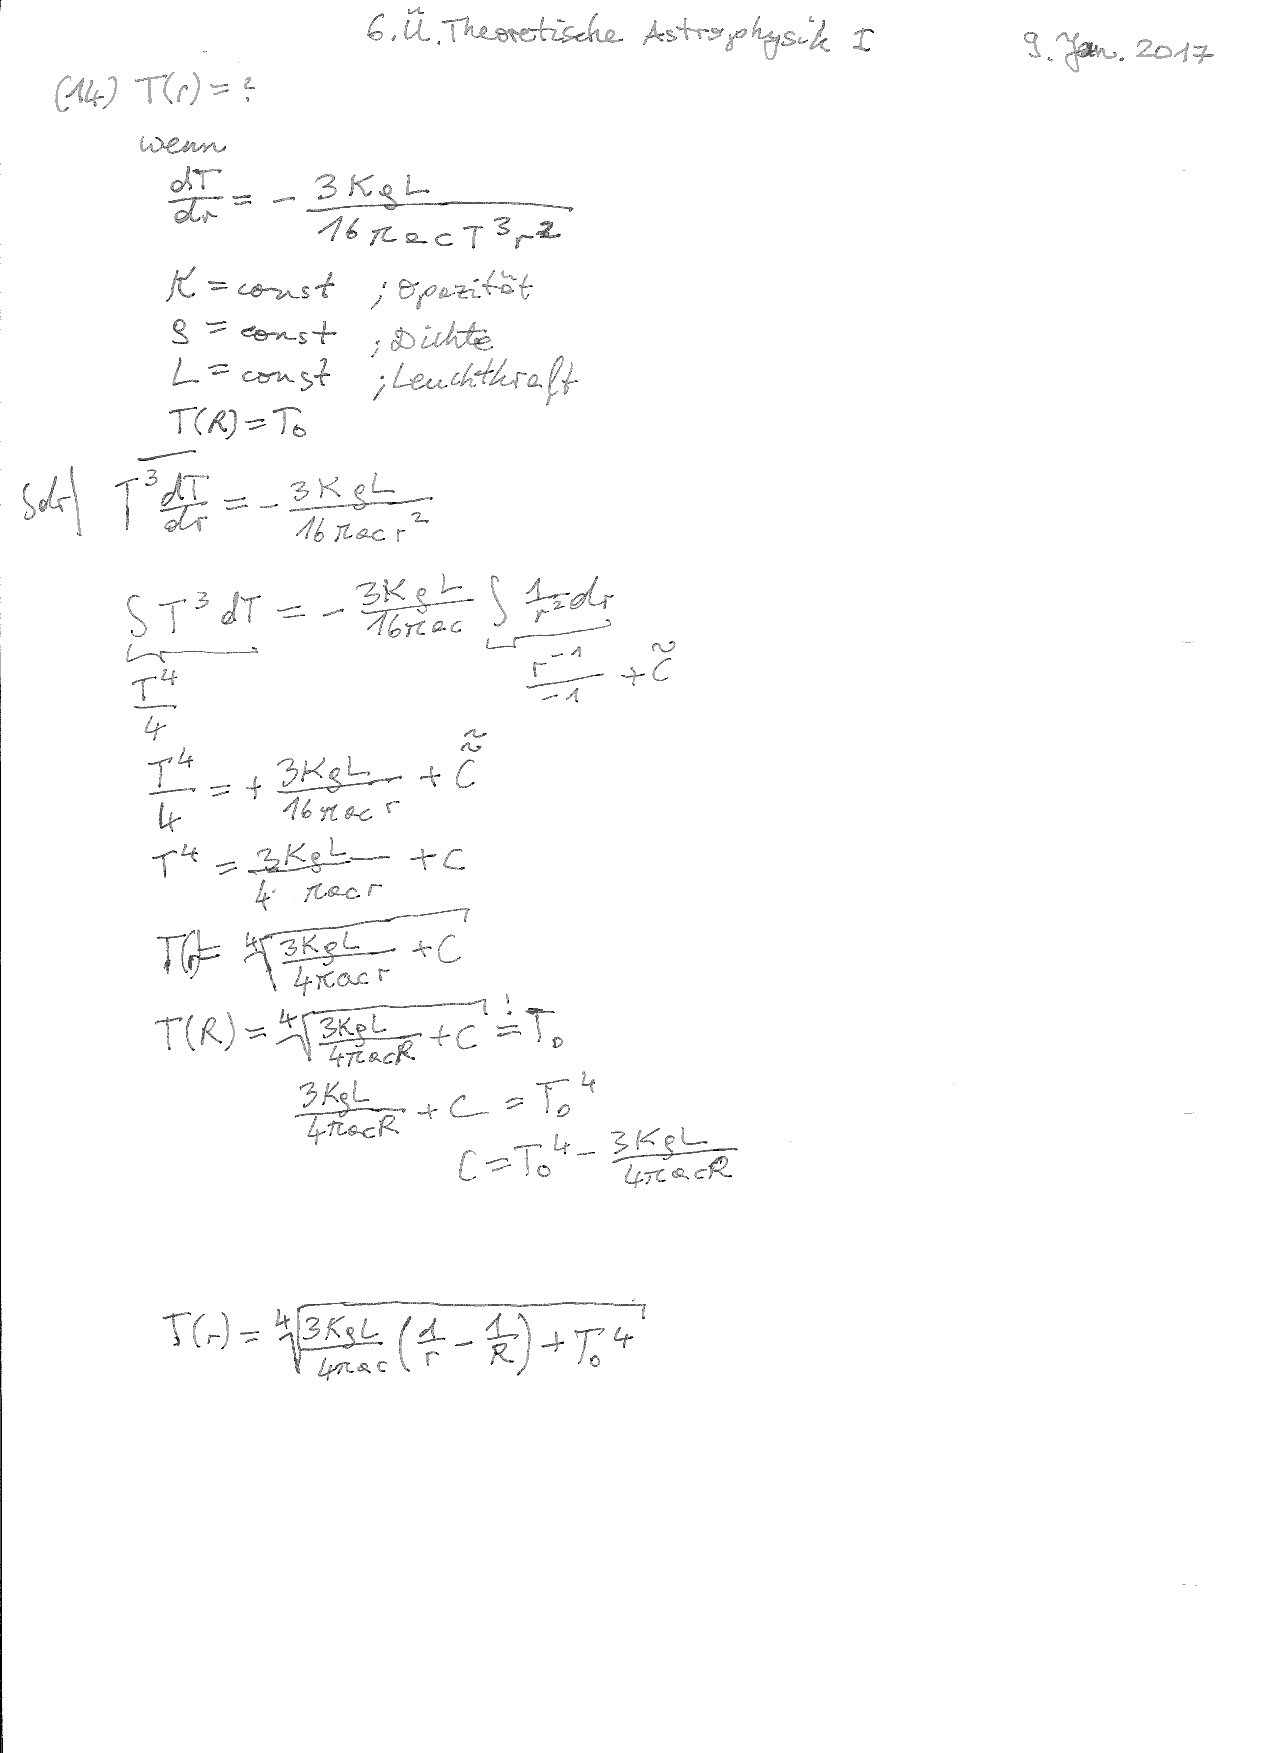 6. Ü. Theoretische Astrophysik I 9. Jan. 2017
(14) T(r) = ?
wenn
dT/dr = - 3KρL / 16πacT³r²
K = const ; Opazität
ρ = const ; Dichte
L = const ; Leuchtkraft
T(R) = T₀
∫dr| T³ dT/dr = - 3KρL / 16πacr²
∫ T³ dT = - 3KρL / 16πac ∫ 1/r² dr
T⁴/4 r⁻¹/-1 + C̃
T⁴/4 = + 3KρL / 16πacr + C̃̃
T⁴ = 3KρL / 4πacr + C
T(r) = ⁴√(3KρL / 4πacr + C)
T(R) = ⁴√(3KρL / 4πacR + C) =! T₀
3KρL / 4πacR + C = T₀⁴
C = T₀⁴ - 3KρL / 4πacR
T(r) = ⁴√(3KρL / 4πac (1/r - 1/R) + T₀⁴)